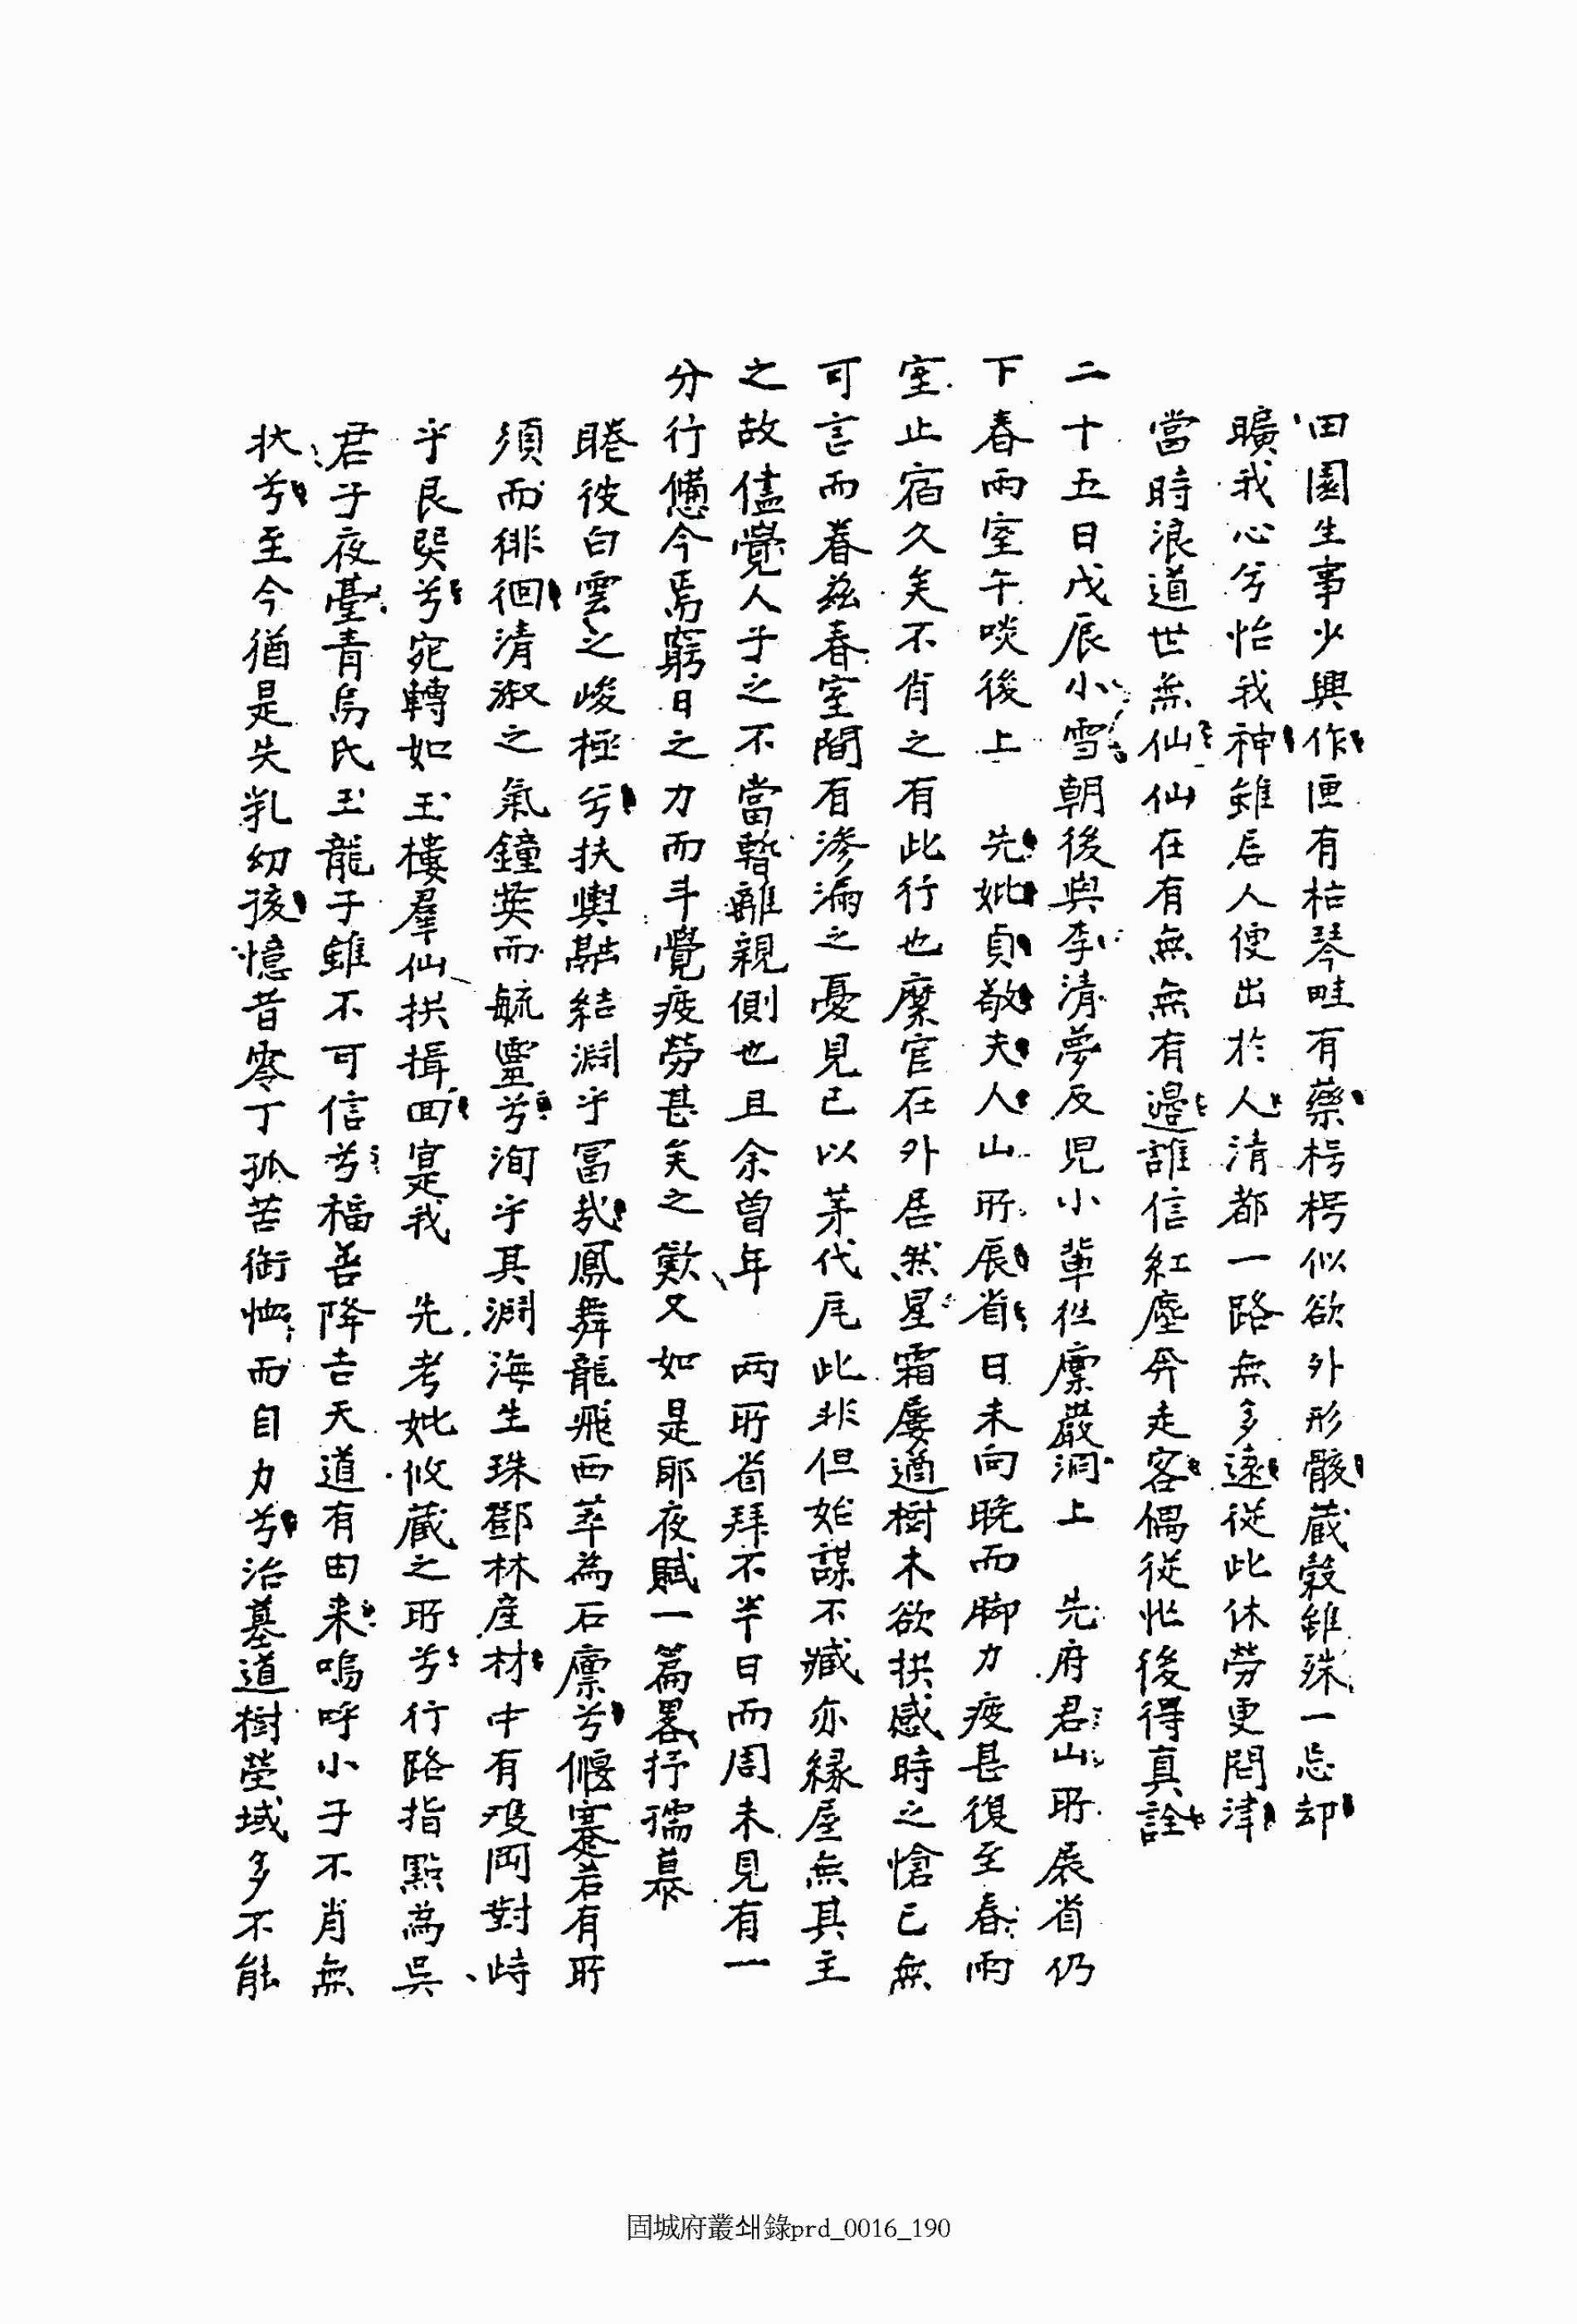 田園生事少興作匣有枯琴畦有藥枵枵似欲外形骸藏穀雖殊一忘却
曠我心兮怡我神雖居人便出於人淸都一路無多遠從此休勞更問津
當時浪道世無仙仙在有無無有邊誰信紅塵奔走客偶從忙後得眞詮
二十五日戊辰小雪朝後與李淸夢及児小輩往廩巖洞上 先府君山所展省仍
下春雨室午啖後上 先妣貞敬夫人山所展省日未向晩而脚力疲甚復至春雨
室止宿久矣不肖之有此行也縻官在外居然星霜屢遒樹木欲拱感時之愴已無
可言而眷玆春室間有滲漏之憂見已以茅代瓦此非但始謀不臧亦緣屋無其主
之故儘覺人子之不當暫離親側也且余曾年 两所省拜不半日而周未見有一
分行憊今焉窮日之力而斗覺疲勞甚矣之歎又如是耶夜賦一篇畧抒孺慕
睠彼白雲之峻極兮扶輿融結淵乎冨哉鳳舞龍飛西萃為石廩兮偃蹇若有所
須而徘徊淸淑之氣鐘英而毓靈兮洵乎其淵海生珠鄧林産材中有雙岡對峙
乎艮巽兮宛轉如玉樓羣仙拱揖回寔我 先考妣攸藏之所兮行路指點為吳
君子夜臺靑烏氏玉龍子雖不可信兮福善降吉天道有由来嗚呼小子不肖無
狀兮至今猶是失乳幼孩憶昔零丁孤苦銜恤而自力兮治墓道樹塋域多不能
固城府叢쇄錄prd_0016_190